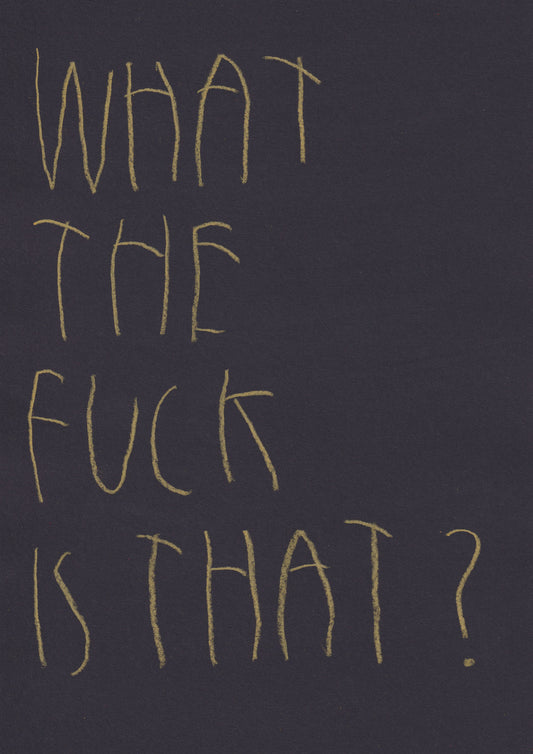 WHAT
THE
FUCK
IS THAT?